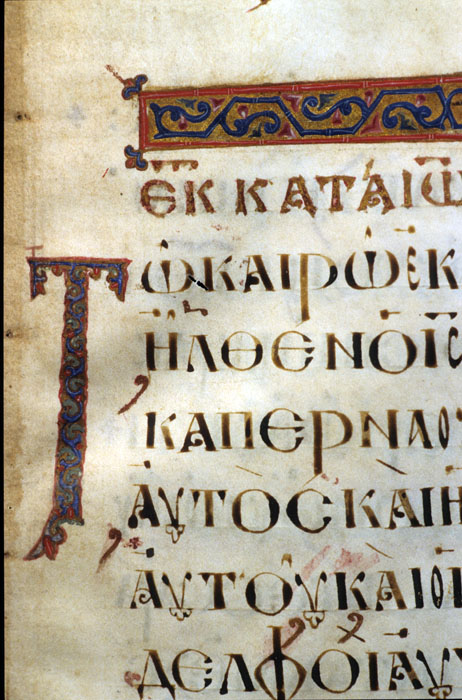 ΕΚ ΚΑΤΑ ΙΩ
ΤΩ ΚΑΙΡΩ ΕΚ
ΗΛΘΕΝ Ο ΙϹ
ΚΑΠΕΡΝΑΟΥ
ΑΥΤΟϹ ΚΑΙ Η
ΑΥΤΟΥ ΚΑΙ ΟΙ
ΔΕΛΦΟΙ ΑΥ